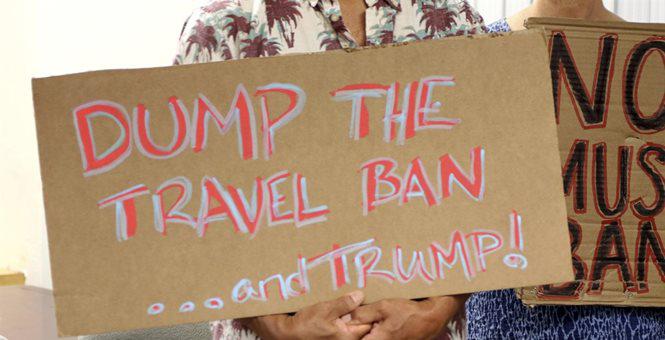 DUMP THE
TRAVEL BAN
...and TRUMP!
NO
MUS
BAN